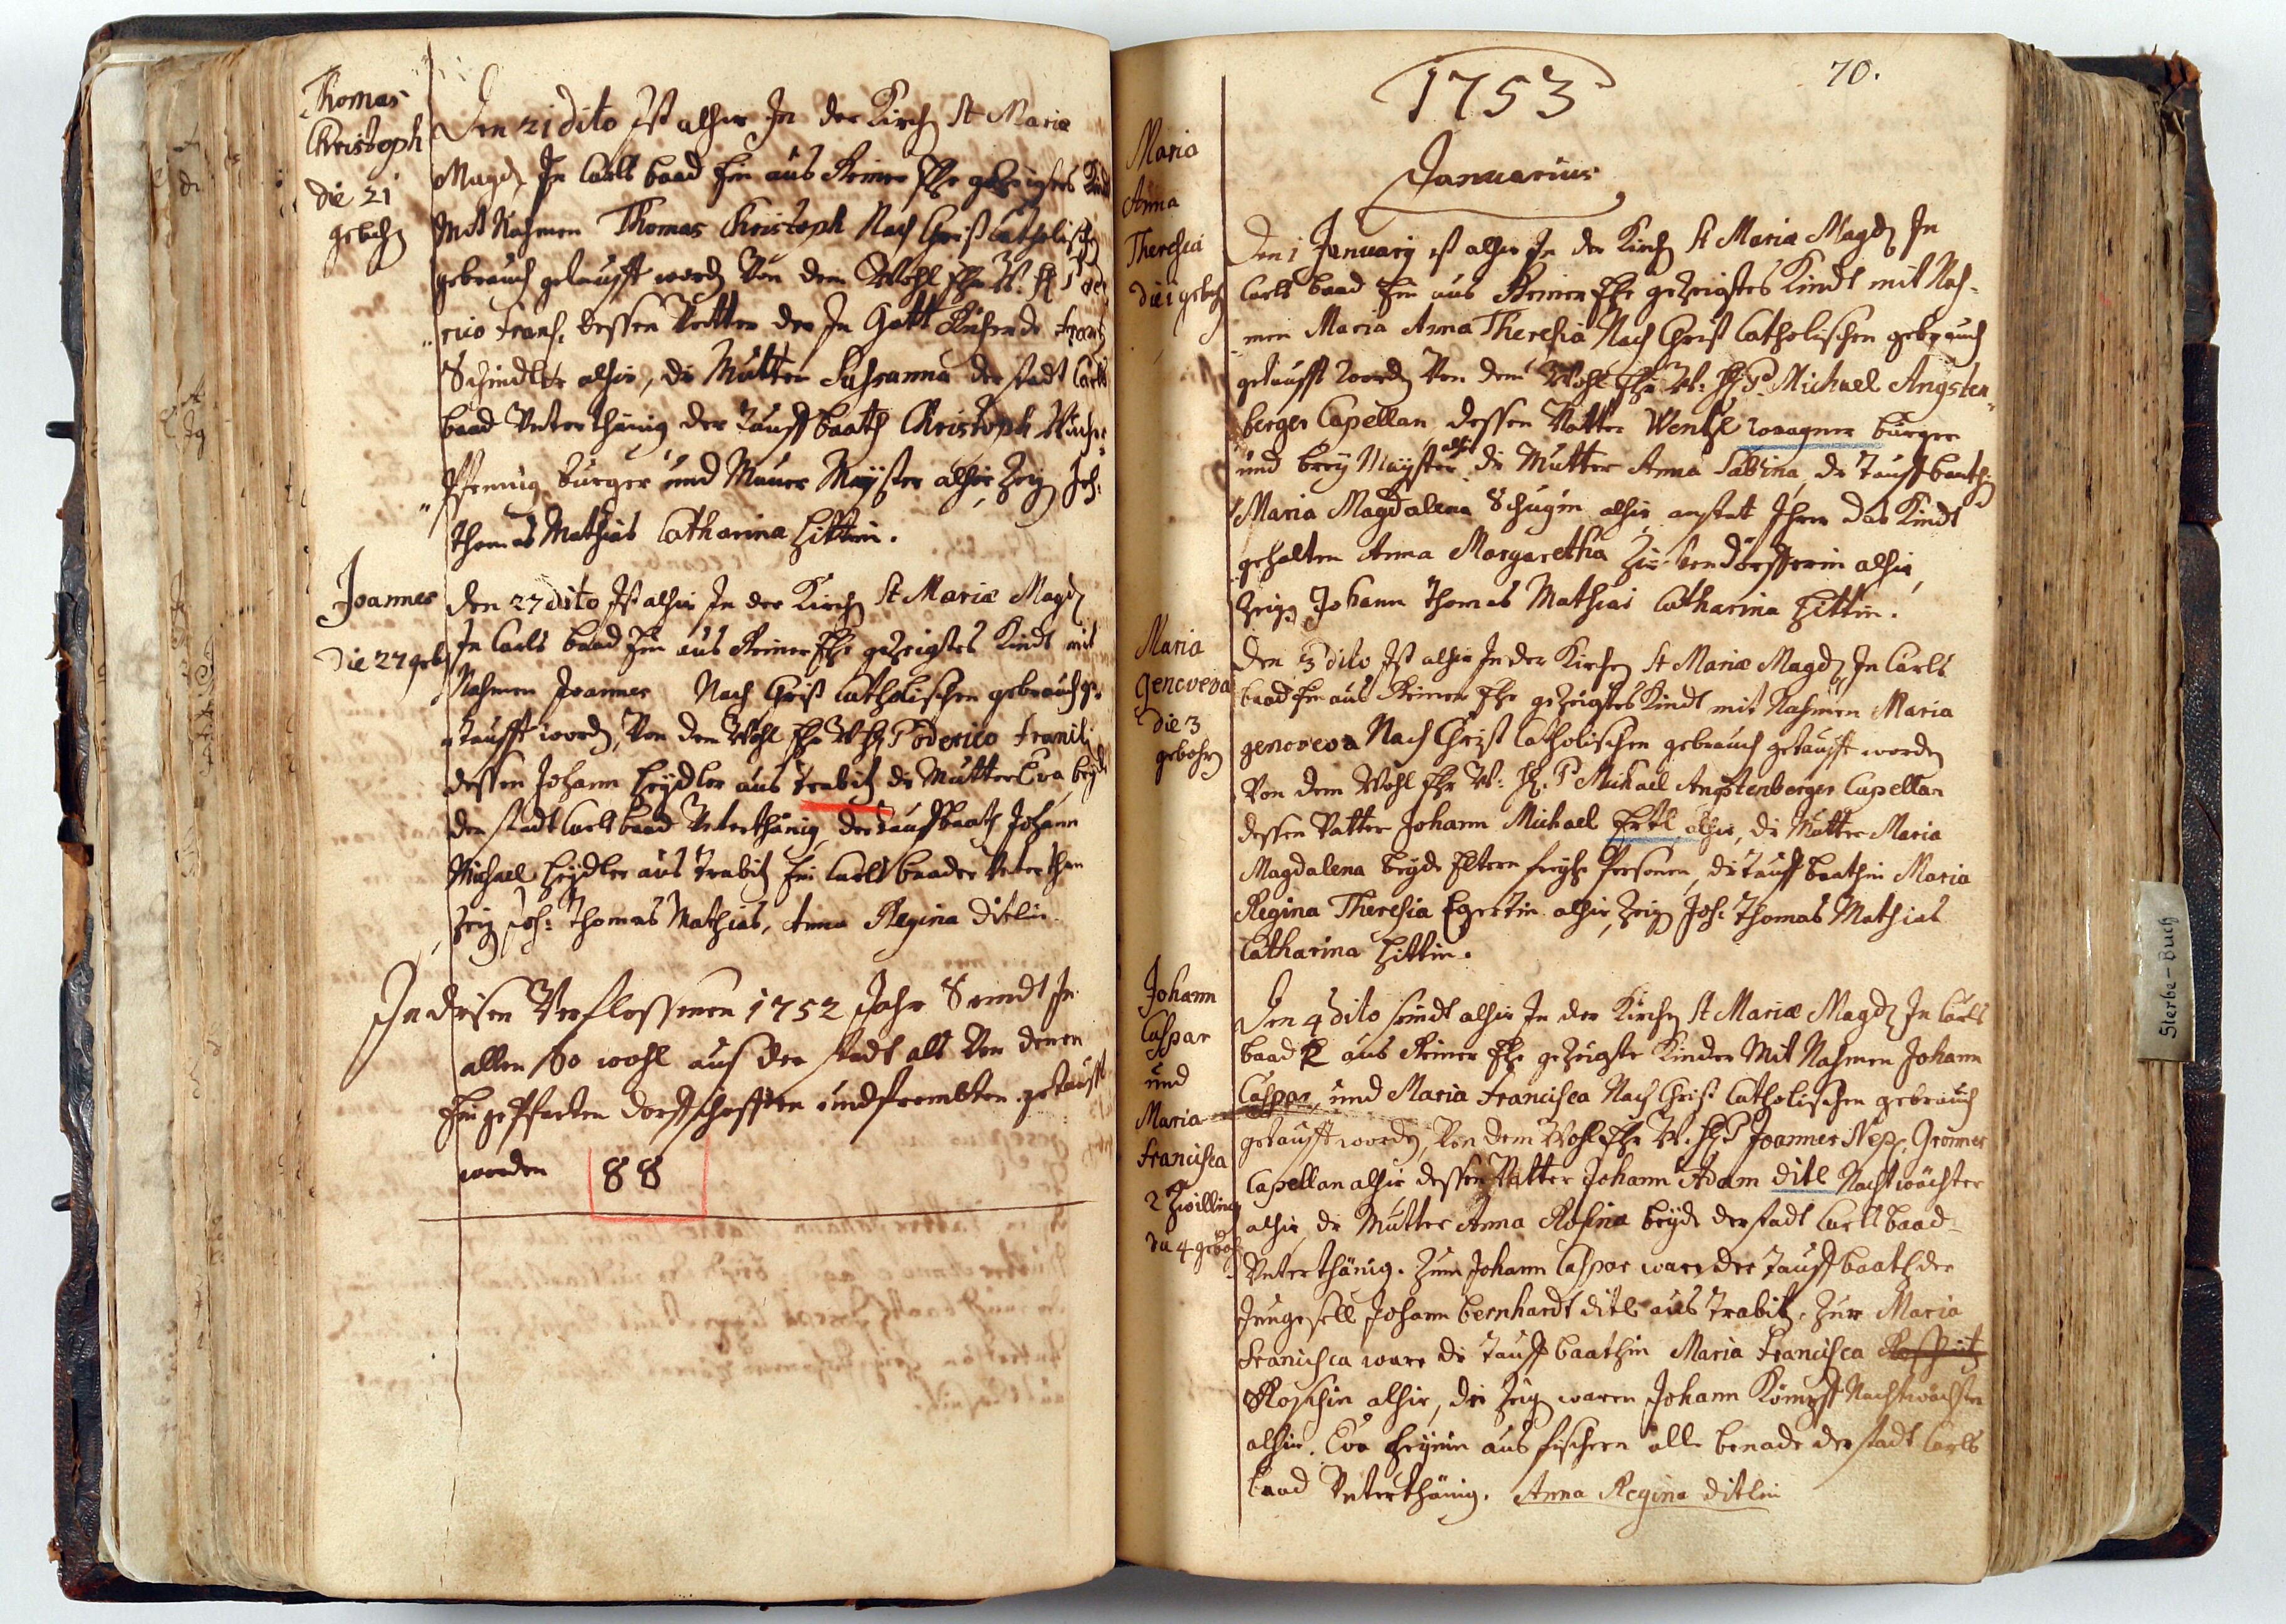 Thomas
Christoph
die 21
gebohr
Den 21 dito Ist alhir In der Kirch St Mariæ
Magd In Carls baad Ein aus Reiner Ehe gezeigtes Kindt
Mit Nahmen Thomas Christoph Nach Christ Catholisch
gebrauch getaufft word Von dem Wohl Ehr W. H P ode
rico Franc. dessen Vatter der In Gott Ruhende Frantz
Schindler alhir, die Mutter Susanna der stadt Carls
baad Unterthänig der Tauff baath Christoph
Pfennig Burger und Maurer Meyster alhir, Zeig Joh:
Thomas Mathias Catharina Zittin.
Joannes
Die 27 geb
Den 27 dito Ist alhir In der Kirch St Mariæ Magd
In Carls baad Ein aus Reiner Ehe gezeigtes Kindt mit
Nahmen Joannes Nach Christ Catholischen gebrauch ge
taufft word, Von dem Wohl Ehr W H P oderico Francis.
dessen Johann Heydler aus Trabitz die Mutter Eva, beyde
der stadt Carlsbaad Unterthänig, der Tauff baath Johann
Michael Heydler aus Trabitz Ein Carls baader Unterthan
Zeig Joh: Thomas Mathias, Anna Regina Ditlin.
In disen Verflossenen 1752 Jahr Seindt In
allen So wohl aus der stadt als Von denen
Eingepfarten Dorffschafften und frembten getaufft
worden 88
70.
1753
Januarius
Maria
Anna
Theresia
die 1 gebohr
Den 1 January ist alhir In der Kirch St Maria Magd In
Carls baad Ein aus Reiner Ehe gezeigtes Kindt mit Nah-
men Maria Anna Theresia Nach Christ Catholischen gebrauch
getaufft word Von dem Wohl Ehr W. H P. Michael Angsten
berger Capellan, dessen Vatter Wentzl Waagner burger
und brey Mayster alhir die Mutter Anna Sabina, die Tauff baathin
Maria Magdalena Schugin alhir, anstat Ihrer das Kindt
gehalten Anna Margaretha dörfferin alhir,
Zeig Johann Thomas Mathias Catharina Zittin.
Maria
Genoveva
die 3
gebohr
Den 3 dito Ist alhir In der Kirchen St Mariæ Magd In Carls
baad Ein aus Reiner Ehe gezeigtes Kindt mit Nahmen Maria
genoveva Nach Christ Catholischen gebrauch getaufft worden
Von dem Wohl Ehr W: H. P Michael Angstenberger Capellan
dessen Vatter Johann Michael Ertl alhir, die Mutter Maria
Magdalena beyde Eltern freyhe Personen, die Tauff baathin Maria
Regina Theresia Egertin alhir, Zeig Joh: Thomas Mathias
Catharina Zittin.
Johann
Caspar
und
Maria
Francisca
2 Zwilling
die 4 geboh
Den 4 dito seindt alhir In der Kirchen St Mariæ Magd In Carls
baad 2 aus Reiner Ehe gezeigte Kinder Mit Nahmen Johann
Caspar, und Maria Francisca Nach Christ Catholischen gebrauch
getaufft worden, Von dem Wohl Ehr W. H P Joannes Nep. Gromes
Capellan alhir dessen Vatter Johann Adam Ditl Nachtwächter
alhir, die Mutter Anna Rosina beyde der stadt Carls baad
Unterthänig. Zum Johann Caspar ware der Tauff baath der
Jungesell Johann bernhardt Ditl aus Trabitz. Zur Maria
Francisca ware die Tauff baathin Maria Francisca
Roschin alhir, die Zeig waren Johann Kömpff Nachtwächter
alhir, Eva aus fischern alle benade der stadt Carls
baad Unterthänig. Anna Regina Ditlin
Sterbe-Buch